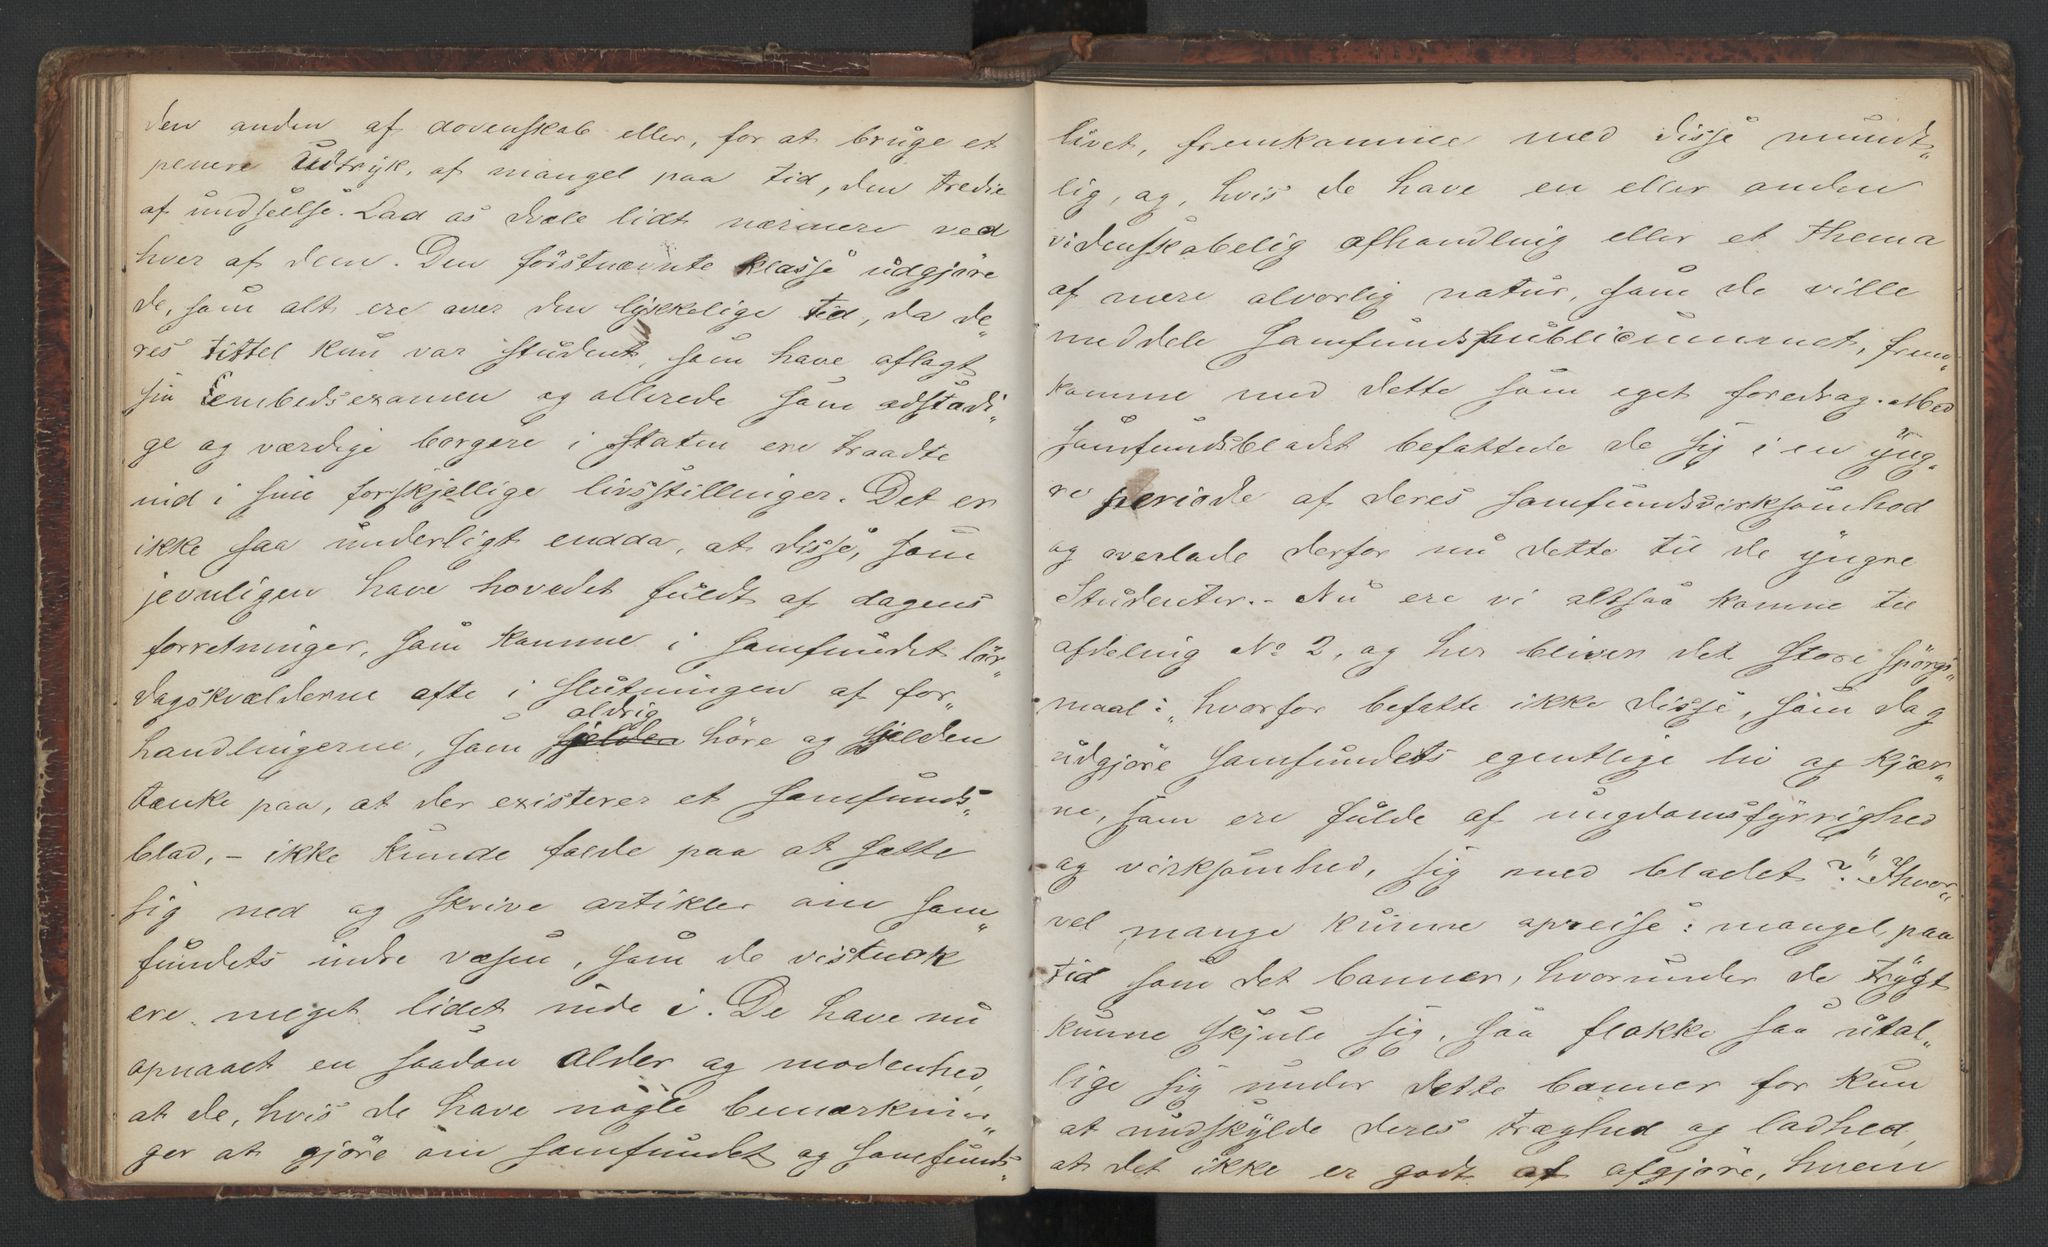 den anden af dovenskab eller, for at bruge et
penere Udtryk, af mangel paa tid, den tredie
af undseelse. Lad os dvæle lidt nærmere ved
hver af dem. Den förstnævnte klasse udgjöre
de, som alt ere over den lykkelige tid, da de„
res tittel kun var student, som have aflagt
sin Eembedsexamen og allerede som adstadi„
ge og værdige borgere i staten ere traadte
ind i sine forskjellige livsstillinger. Det er
ikke saa underligt endda, at disse, som
jevnligen have hovedet fuldt af dagens
forretninger, som komme i samfundet lör„
dagskvælderne ofte i slutningen af for„
aldrig
handlingerne, som sjelden höre og sjelden
tænke paa, at der existerer et samfunds„
blad, – ikke kunde falde paa at sætte
sig ned og skrive artikler om sam„
fundets indre væsen, som de vistnok
ere meget lidet inde i. De have nu
opnaaet en saadan alder og modenhed,
at de, hvis de have nogle bemærknin„
ger at gjöre om samfundet og samfunds„
livet, fremkomme med disse mundt„
lig, og, hvis de have en eller anden
videnskabelig afhandling eller et Thema
af mere alvorlig natur, som de ville
meddele samfundspublicummet, frem„
komme med dette som eget foredrag. Med
samfundsbladet befattede de sig i en yng„
re periode af deres samfundsvirksomhed
og overlade derfor nu dette til de yngre
Studenter. – Nu ere vi altsaa komne til
afdeling No 2, og her bliver det store spörgs„
maal: „hvorfor befatte ikke disse, som dog
udgjöre samfundets egentlige liv og kjær„
ne, som ere fulde af ungdomsfyrrighed
og virksomhed, sig med bladet?“ Ihvor„
vel mange kunne opreise: mangel paa
tid som det banner, hvorunder de trygt
kunne skjule sig, saa flokke saa utal„
lige sig under dette banner for kun
at undskylde deres træghed og ladhed,
at det ikke er godt at afgjöre, hvem